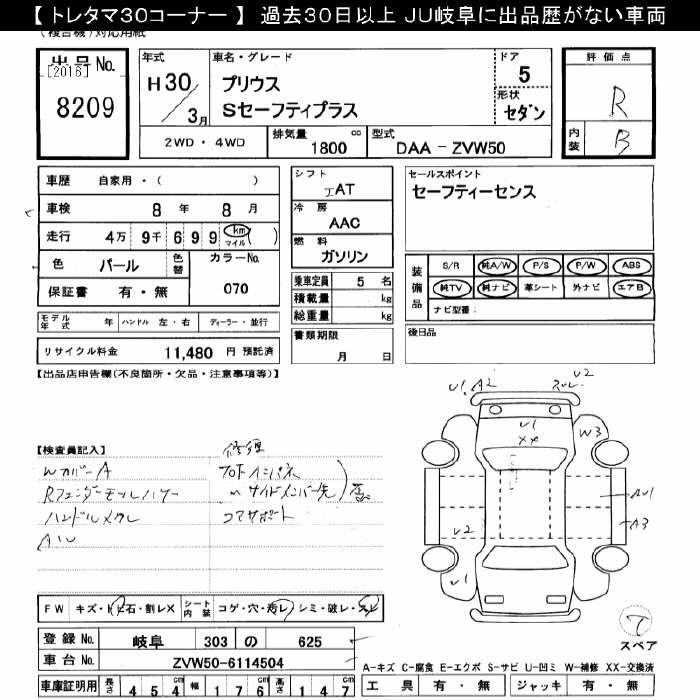 【 トレタマ30コーナー 】 過去30日以上 JU岐阜に出品歴がない車両
(複合機)対応用紙
出品No.
[2016]
8209
年式
H30／3月
車名・グレード
プリウス
Sセーフティプラス
ドア
5
形状
セダン
2WD ・ 4WD
排気量
1800 cc
型式
DAA - ZVW50
評価点
R
内装
B
車歴 自家用・( )
車検 8年 8月
走行 4万 9千 6 9 9 km マイル
色 パール 色替 カラーNo.
保証書 有・無 070
モデル年式 年 ハンドル 左・右 ディーラー・並行
リサイクル料金 11,480 円 預託済
シフト
IAT
冷房
AAC
燃料
ガソリン
乗車定員 5 名
積載量 kg
総重量 kg
書類期限
月 日
セールスポイント
セーフティーセンス
装備品
S/R 純A/W P/S P/W ABS
純TV 純ナビ 革シート 外ナビ エアB
ナビ型番:
後日品
【出品店申告欄(不良箇所・欠品・注意事項等)】
【検査員記入】
修復
WカバーA
Rフェンダーモール
ハンドルスレ
コアサポート
U1 A2 スレ U2
U1
XX
W3
AU1
A3
U2
U1
T
スペア
FW キズ・トビ石・割レX シート内装 コゲ・穴・汚レ シミ・破レ・スレ
登録No. 岐阜 303 の 625
車台No. ZVW50-6114504
車庫証明用 長さ 454 幅 176 高さ 147
A-キズ C-腐食 E-エクボ S-サビ U-凹ミ W-補修 XX-交換済
工具 有・無 ジャッキ 有・無